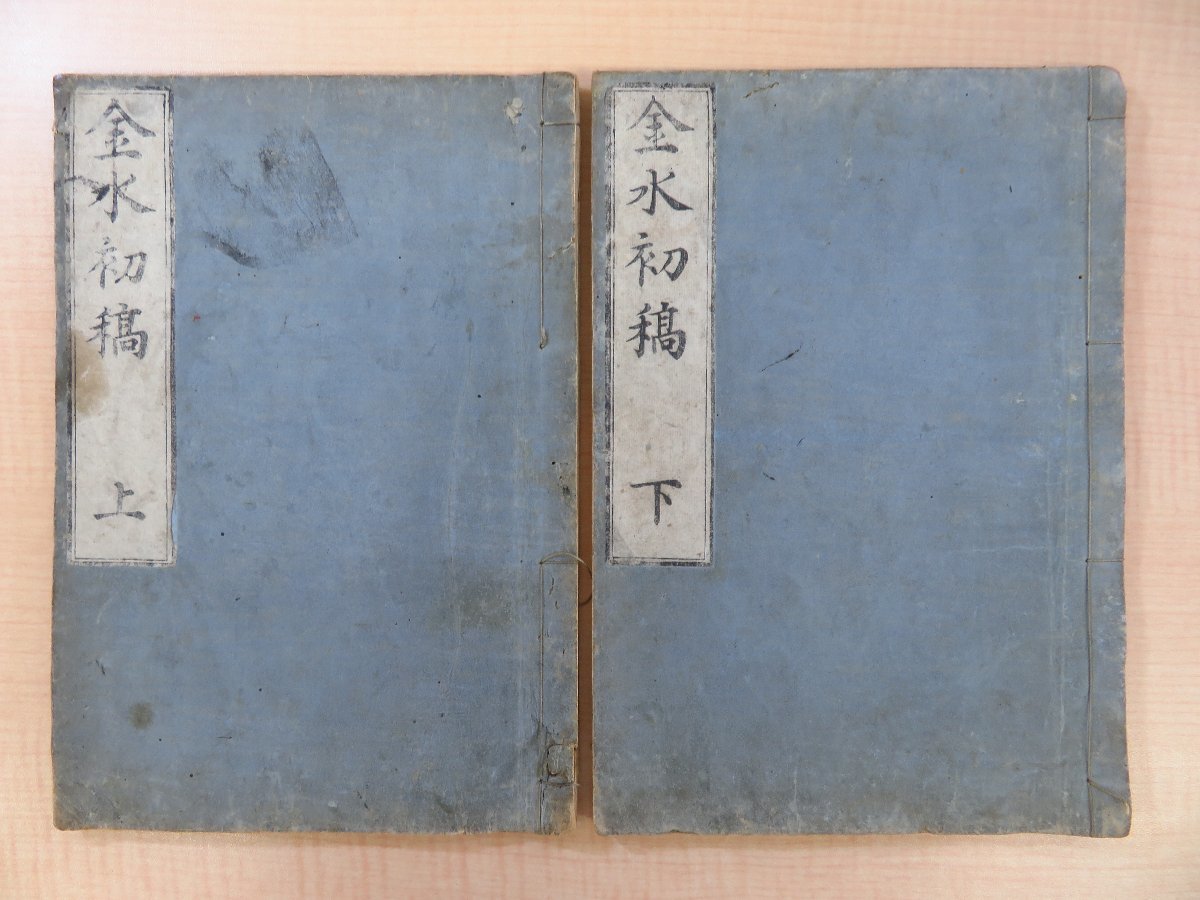 金水初稿 上
金水初稿 下